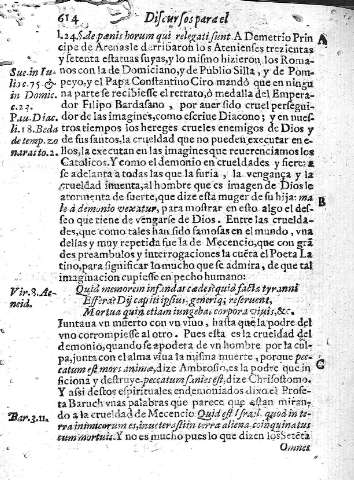 614
Discursos para el
l.24.§.de pœnis horum qui relegati sient A Demetrio Prin
cipe de Atenas le derribaron los Atenienses trezientas
y setenta estatuas suyas, y lo mismo hizieron los Roma
nos con la de Domiciano, y de Publio Silla, y de Pom-
peyo, y el Papa Constantino Ciro. mandaua que en nin-
guna parte se recibiesse el retrato, ò medalla del Empera-
dor Filipo Bardasano, por auer sido cruel persegui-
dor de las imagines, como escriue Diacono; y en nues-
tros tiempos los hereges crueles enemigos de Dios y
de sus santos, la crueldad que no pueden executar en e-
llos, la executan en las imagines que reuerenciamos los
Catolicos. Y como el demonio en crueldades y fierezas
se adelanta a todas las que la furia, la vengança y la
crueldad inuenta, al hombre que es imagen de Dios le
atormenta de suerte, que dize esta muger de su hija: ma
le à demonio vexatur, para mostrar en esto algo el des-
seo que tiene de vengarse de Dios. Entre las crueldа-
des, que como tales han sido famosas en el mundo, vna
dellas y muy repetida fue la de Mecencio, que con grã
des preambulos y interrogaciones la cuẽta el Poeta La
tino, para significar lo mucho que se admira, de que tal
imaginacion cupiesse en pecho humano:
Quid memorem infandas cædes quid facta tyranni
Effera? Dij capiti ipsius, generiq; reseruent,
Mortua quin etiam iungebat corpora viuis, &c.
Iuntaua vn muerto con vn viuo, hasta que la podre del
vno corrompiesse al otro. Pues esta es la crueldad del
demonio, quando se apodera de vn hombre por la cul-
pa, junta con el alma viua la misma muerte, porque pec-
catum est mors animæ, dize Ambrosio, es la podre que in-
ficiona y destruye, peccatum sanies est, dize Chrisostomo.
Y assi destos espirituales endemoniados dixo el Profe-
ta Baruch vnas palabras que parece que estan miran-
do a la crueldad de Mecencio Quid est Israel. quod in te-
rra inimicorum es, inueterasti in terra aliena coinquinatus
cum mortuis. Y no es mucho pues lo que dizen los Setẽta
Omnes
Sue. in Iu-
lio c.75 &
in Domic.
c.23.
Pau. Diac.
li.18. Beda
de temp. 20
nara ito.2.
Vir. 8. Ae-
neid.
Bar. 3. 11.
A
B
C